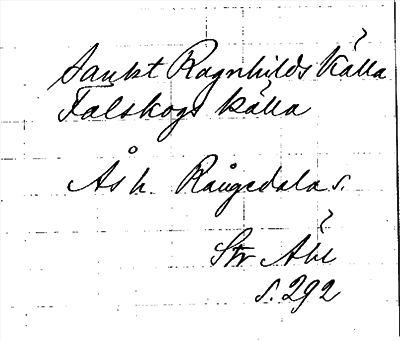 Sankt Ragnhilds Källa
Falskogs källa
Ås h. Rångedala s.
Str Ahl
s. 292